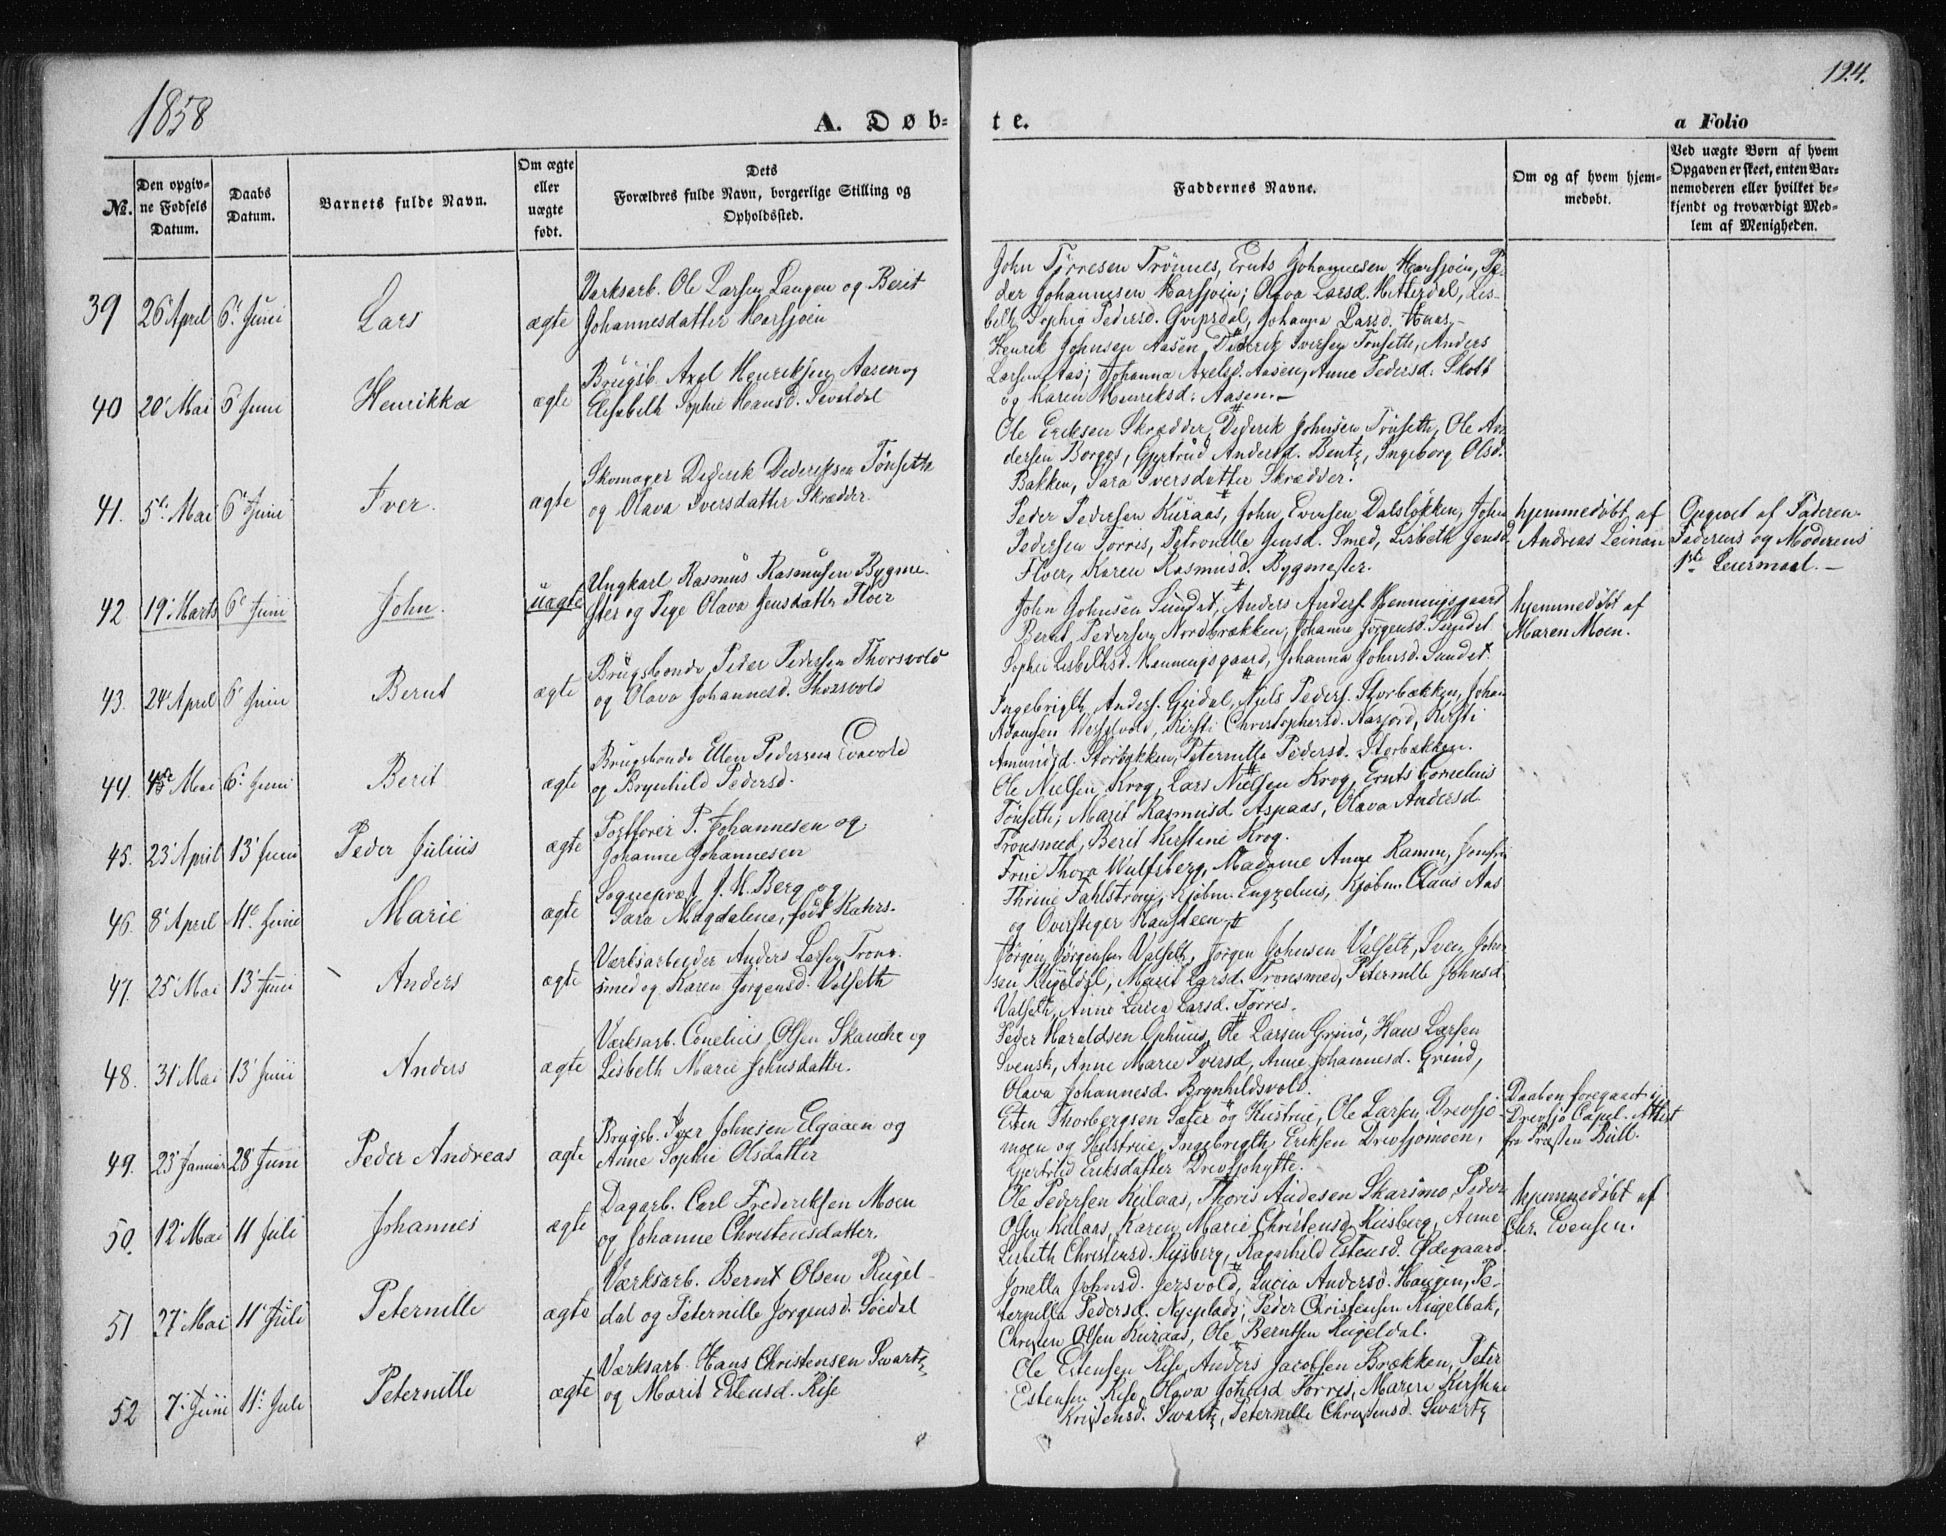 1858
A. Døb-
te.
a Folio
124.
No.
Den opgiv-
ne Fødsels
Datum.
Daabs
Datum.
Barnets fulde Navn.
Om ægte
eller
uægte
født.
Dets
Forældres fulde Navn, borgerlige Stilling og
Opholdssted.
Faddernes Navne.
Om og af hvem hjem-
medøbt.
Ved uægte Børn af hvem
Opgaven er skeet, enten Bar-
nemoderen eller hvilket be-
kjendt og troværdigt Med-
lem af Menigheden.
39 26 April 6 Juni Lars ægte
Værksarb. Ole Larsen Langen og Berit
Johannesdatter Harsjøen
John Tørresen Trønnes, Ernts Johannesen Harsjøen, Pe-
der Johannesen Harsjøen; Olava Larsd. Hitterdal, Lis-
beth Sophia Pedersd. Johanna Larsd. Huas.
40 20 Mai 6 Juni Henrikka ægte
Brugsb. Axel Henriksen Aasen og
Elisabeth Sophie Hansd.
Henrik Johnsen Aasen, Diderik Iversen Tønseth, Anders
Larsen Aas; Johanna Axelsd. Aasen, Anne Pedersd. Skott
og Karen Henriksd. Aasen.
41. 5te Mai 6 Juni Iver. ægte
Skomager Dederik Dederiksen Tønseth
og Olava Iversdatter Skrædder.
Ole Eriksen Skrædder, Dederik Johnsen Tønseth, Ole An-
dersen Borgos, Gjertrud Andersd. Bentz, Ingeborg Olsd.
Bakken, Sara Iversdatter Skrædder.
42. 19 Marts 6 Juni John. uægte
Ungkarl Rasmus Rasmusen Bygme-
ster og Pige Olava Jensdatter Floer
Peder Pedersen Kuraas, John Evensen Dalsløkken, John
Pedersen Torres, Petronelle Jensd. Smed, Lisbeth Jensd.
Floer, Karen Rasmusd. Bygmester.
hjemmedøbt af
Andreas Leinan
Opgivet af Faderen.
Faderens og Moderens
1ste Leiermaal.
43. 24 April 6 Juni Bernt ægte
Brugsbonde Peder Pedersen Thorsvold
og Olava Johannesd. Thorsvold
John Johnsen Sundet, Anders Anders. Henningsgaard
Bernt Pedersen Nordbrækken, Johanna Jørgensd. Sundet
Sophie Lisbethsd. Henningsgaard, Johanna Johnsd. Sundet.
hjemmedøbt af
Maren Moen.
44. Mai 6 Juni Berit ægte
Brugsbonde Ellen Pedersen Evavold
og Brynhild Pedersd.
Ingebrigth Anders. Niels Peders. Storbækken, Johan
Adamsen Wesselvold, Kirsti Christophersd. Aasjord, Kirsti
Amundsd. Storbækken, Peternille Pedersd. Storbækken.
45. 23 April 13 Juni Peder Julius ægte
P. Johannesen og
Johanne Johannesen
Ole Nielsen Krog, Lars Nielsen Krog, Ernts Cornelius
Tønseth; Marit Rasmusd. Aspaas, Olava Andersd.
Tronsmed, Berit Kirstine Krog.
46. 8 April 11 Juni Marie ægte
Sognepræst J. H. Berg og
Sara Magdalene, født Kahrs.
Frue Thora Wulfsberg, Madame Anne Ramm, Jomfru
Thrine Fahlstrøm, Kjøbm. Engzelius, Kjøbm. Claus Aas
og Overstiger Hansteen
47. 25 Mai 13 Juni Anders ægte
Værksarbeider Anders Larsen Trons-
smed og Karen Jørgensd. Valseth
Jørgen Jørgensen Valseth, Jørgen Johnsen Valseth, Sven John-
sen Kugeldal, Marit Larsd. Tronsmed, Peternille Johnsd.
Valseth, Anne Lucia Larsd. Torres.
48. 31 Mai 13 Juni Anders ægte
Værksarb. Conelius Olsen Skancke og
Lisbeth Marie Johnsdatter.
Peder Haraldsen Ophuus, Ole Larsen Grind, Hans Larsen
Svensk, Anne Marie Iversd, Anne Johannesd. Grind,
Olava Johannesd. Brynhildsvold.
49. 23 Januar 28 Juni Peder Andreas ægte
Brugsb. Peer Johnsen Elgaaen og
Anne Sophie Olsdatter
Esten Thorbergsen Sæter og Hustrue, Ole Larsen Drevsjø-
moen og Hustrue, Ingebrigth Eriksen Drevsjømoen,
Gjertrud Eriksdatter Drevsjøhytte.
Daaben foregaaet i
Drevsjø Capel. Attest
fra Præsten Bull.
50. 12 Mai 11 Juli Johannes ægte
Dagarb. Carl Frederiksen Moen
og Johanne Christensdatter.
Ole Pedersen Kulaas, Thoris Andesen Skarsmo, Peder
Olsen Kulaas, Karen Marie Christensd. Riisberg, Anne
Lisbeth Christensd. Riisberg, Ragnhild Estensd. Ødegaard.
hjemmedøbt af
Chr. Evensen.
51 27 Mai 11 Juli Peternille ægte
Værksarb. Bernt Olsen Kugel-
dal og Peternille Jørgensd. Søedal
Jonetta Johnsd. Jersvold, Lucia Andersd. Haugen, Pe-
ternilla Pedersd. Nyeplads; Peder Christensen Kugelbak,
Christen Olsen Kuraas, Ole Berntsen Kugeldal.
52 7 Juni 11 Juli Peternille ægte
Værksarb. Hans Christensen Svartz
og Marit Estensd. Rise
Ole Estensen Rise, Anders Jacobsen Brækken, Peter
Estensen Rise, Olava Johnsd Torres, Maren Kirstine
Kristensd. Swartz, Peternille Christensd. Swartz